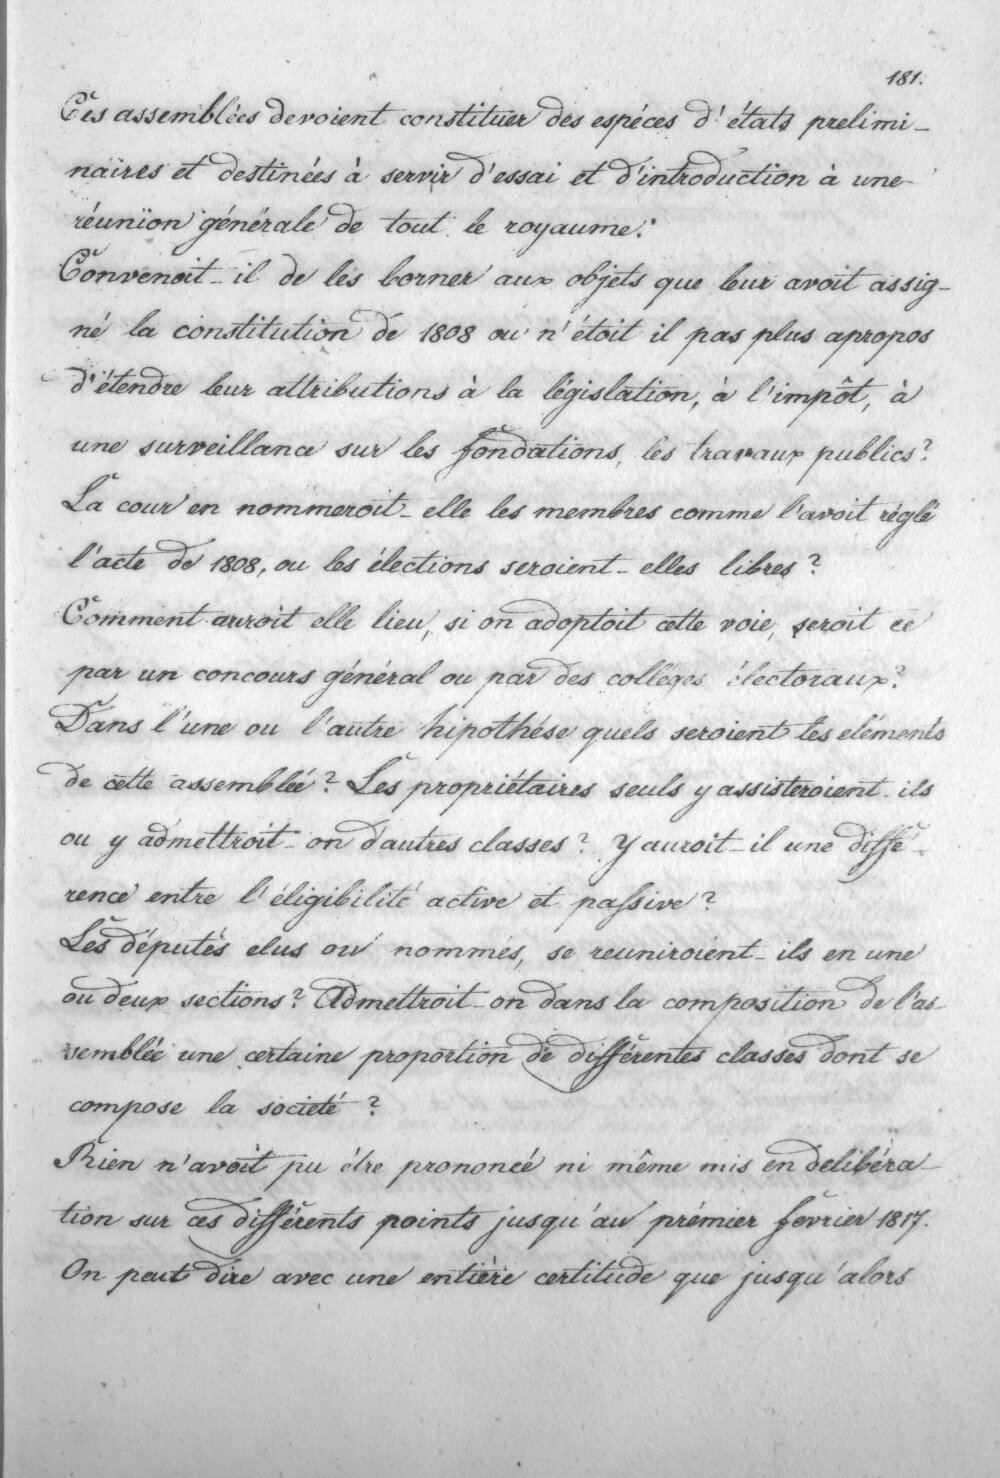 181.
Ces assemblées devoient constituer des espéces d'états prelimi-
naires et destinées à servir d'essai et d'introduction à une
réunion générale de tout le royaume.
Convenoit-il de les borner aux objets que leur avoit assig-
né la constitution de 1808 ou n'étoit il pas plus apropos
d'étendre leur attributions à la législation, à l'impôt, à
une surveillance sur les fondations, les travaux publics?
La cour en nommeroit-elle les membres comme l'avoit réglé
l'acte de 1808, ou les élections seroient-elles libres?
Comment auroit elle lieu, si on adoptoit cette voie, seroit ce
par un concours général ou par des colleges électoraux?
Dans l'une ou l'autre hipothése quels seroient les eléments
de cette assemblée? Les propriétaires seuls y assisteroient-ils
ou y admettroit-on d'autres classes? Y auroit-il une diffé-
rence entre l'éligibilité active et passive?
Les députés elus ou nommés, se reuniroient-ils en une
ou deux sections? Admettroit-on dans la composition de l'as-
semblée une certaine proportion de différentes classes dont se
compose la societé?
Rien n'avoit pu étre prononcé ni même mis en delibéra-
tion sur ces différents points jusqu'au prémier fevrier 1817.
On peut dire avec une entière certitude que jusqu'alors